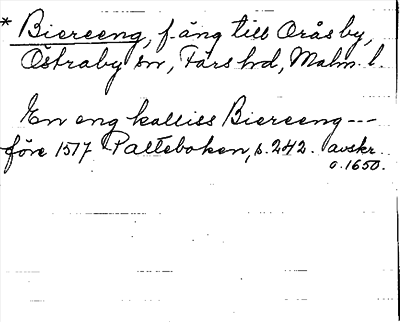 * Biereeng, f. äng till Oråsby,
Östraby sn, Färs hd, Malm. l.
En eng kalliss Biereeng ---
före 1517 Palteboken, s. 242. avskr.
o. 1650.